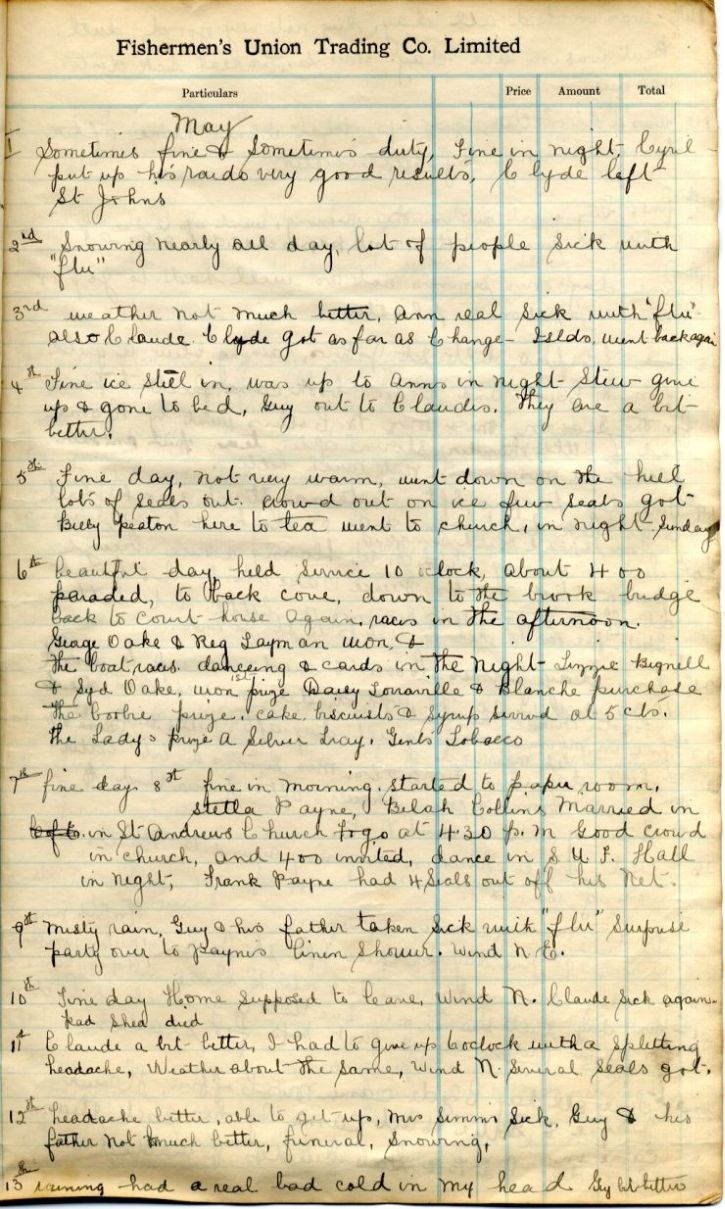 Fishermen's Union Trading Co. Limited
Particulars Price Amount Total
May
1 Sometimes fine & Sometimes duty, Fine in night. Cyril
put up his raido very good results, Clyde left
St Johns
2nd Snowing nearly all day, lot of people sick with
"flu"
3rd weather not much better, Ann real sick with "flu"
also Claude. Clyde got as far as Change Islds, went back again
4th Fine ice still in, was up to Anns in night Stew give
up & gone to bed, Guy out to Claudes. They are a bit
better.
5th Fine day, not very warm, went down on the hill
lots of seals out. crowd out on ice few seals got
Billy Peaton here to tea went to church, in night Sunday
6th beautiful day, held service 10 oclock, about 400
paraded, to back cove, down to the brook bridge
back to court house again, races in the afternoon.
George Oake & Reg Layman won, &
the boat races. dancing & cards in the night Lizzie Bignell
& Syd Oake, won 1st prize Daisy & Blanche purchase
the boobie prize. cake, biscuits & Syrup served at 5 cts.
the Ladys prize a Silver Tray. Gents Tobacco
7th fine day 8st fine in morning. started to paper room.
Stella Payne, Belah Collins Married in
in St Andrews Church Fogo at 4.30 p.m Good crowd
in church, and 400 invited, dance in S U F. Hall
in night, Frank Payne had 4 Seals out off his Net.
9st Misty rain, Guy & his father taken sick with "flu" Surpuse
party over to Paynes linen Shower. Wind N.E.
10st Fine day Home supposed to leave, Wind N. Claude sick again.
died
11st Claude a bit better, I had to give up 6oclock with a splitting
headache, Weather about the same, Wind N. Several Seals got.
12st headache better, able to get up, Mrs Simms sick, Guy & his
father not much better, funeral, snowing,
13th raining had a real bad cold in my head Guy bit better